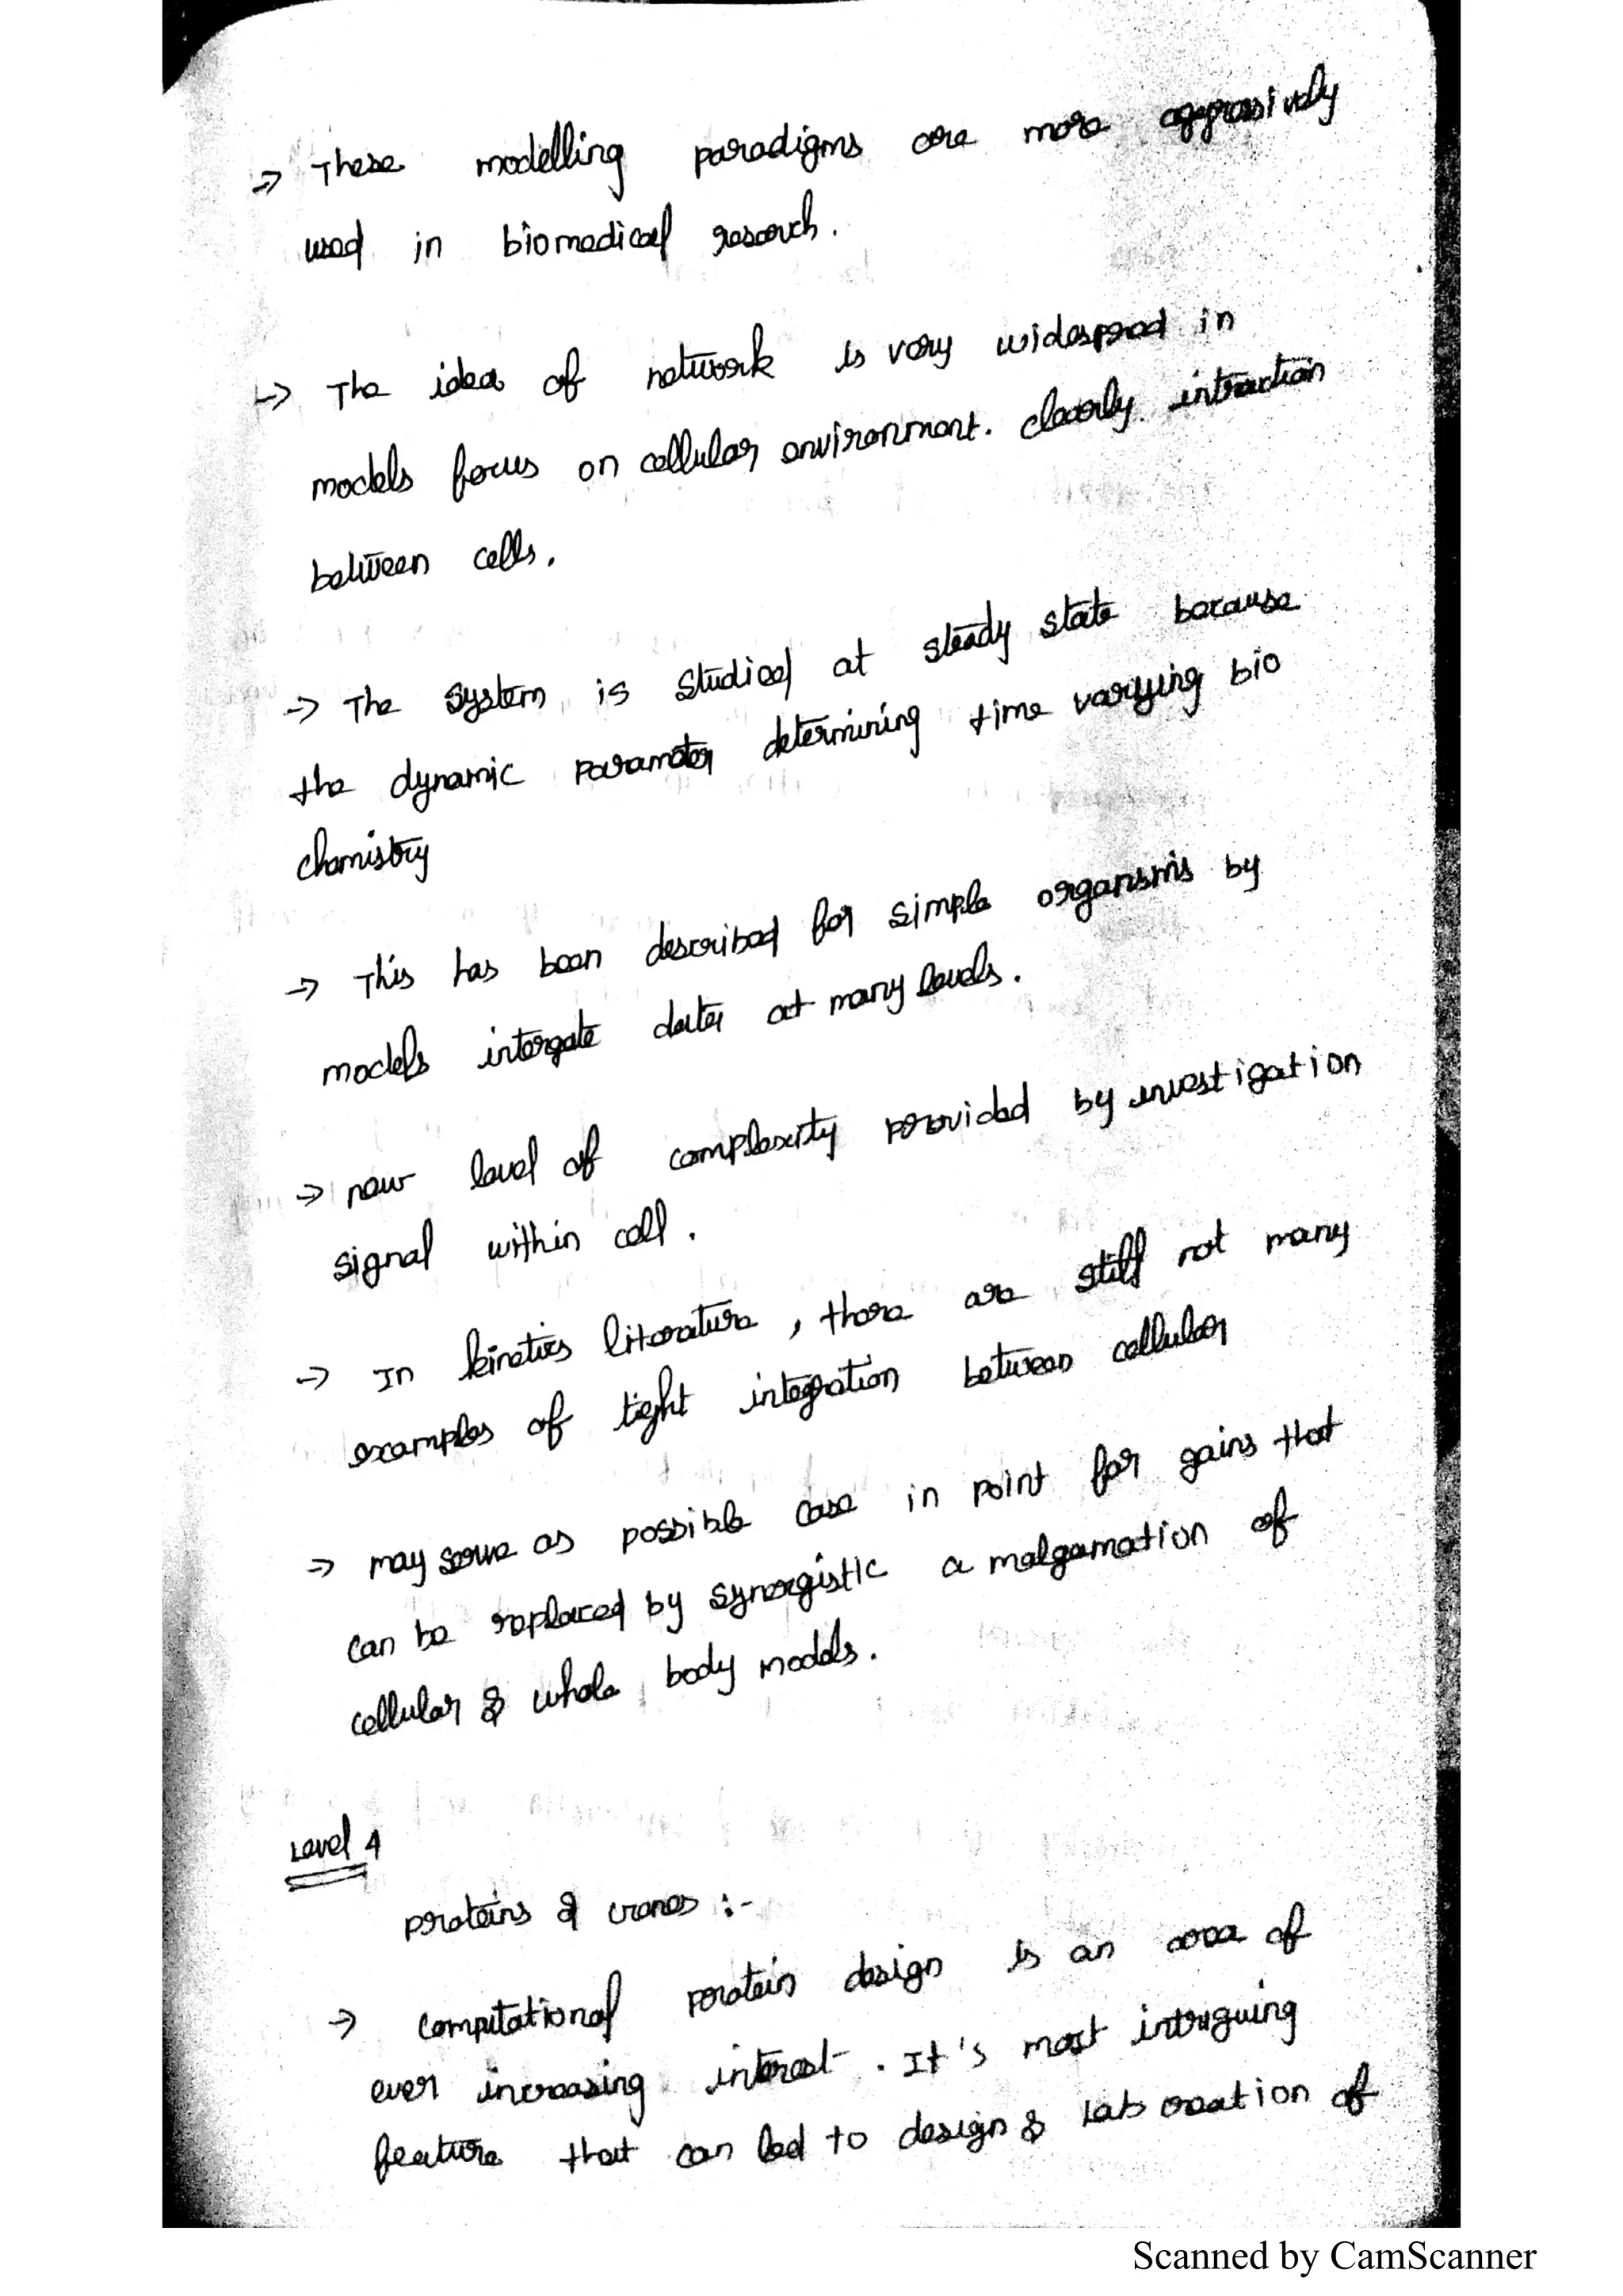 → These modelling paradigms are more aggressively
used in biomedical research.
→ The idea of network is very widespread in
models focus on cellular environment. clearly intraction
between cells.
→ The system is studied at steady state because
the dynamic parameter determining time varying bio
chemistry
→ This has been described for simple organisms by
models intergate data at many levels.
→ new level of complexity provided by investigation
signal within cell.
→ In kinetics literature, there are still not many
examples of tight integration between cellular
→ may serve as possible case in point for gains that
can be replaced by synergistic a malgamation of
cellular & whole body models.
Level 4
proteins & :-
→ computational protein design is an area of
ever increasing interest. It's most intriguing
feature that can led to design & lab creation of
Scanned by CamScanner